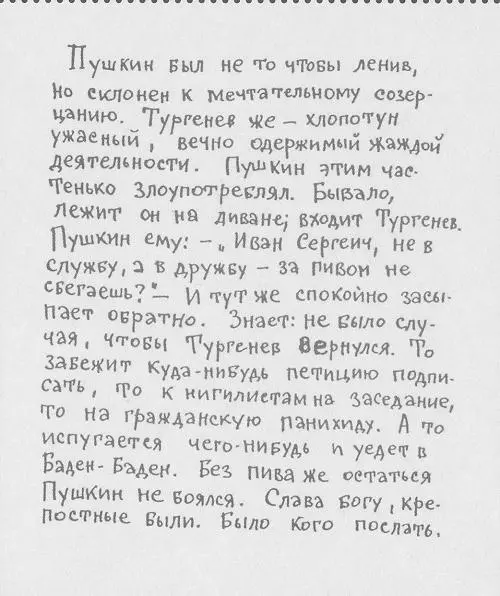 Пушкин был не то чтобы ленив,
но склонен к мечтательному созер-
цанию. Тургенев же – хлопотун
ужасный, вечно одержимый жаждой
деятельности. Пушкин этим час-
тенько злоупотреблял. Бывало,
лежит он на диване; входит Тургенев.
Пушкин ему: – „Иван Сергеич, не в
службу, а в дружбу – за пивом не
сбегаешь?" – И тут же спокойно засы-
пает обратно. Знает: не было слу-
чая, чтобы Тургенев вернулся. То
забежит куда-нибудь петицию подпи-
сать, то к нигилистам на заседание,
то на гражданскую панихиду. А то
испугается чего-нибудь и уедет в
Баден-Баден. Без пива же остаться
Пушкин не боялся. Слава богу, кре-
постные были. Было кого послать.